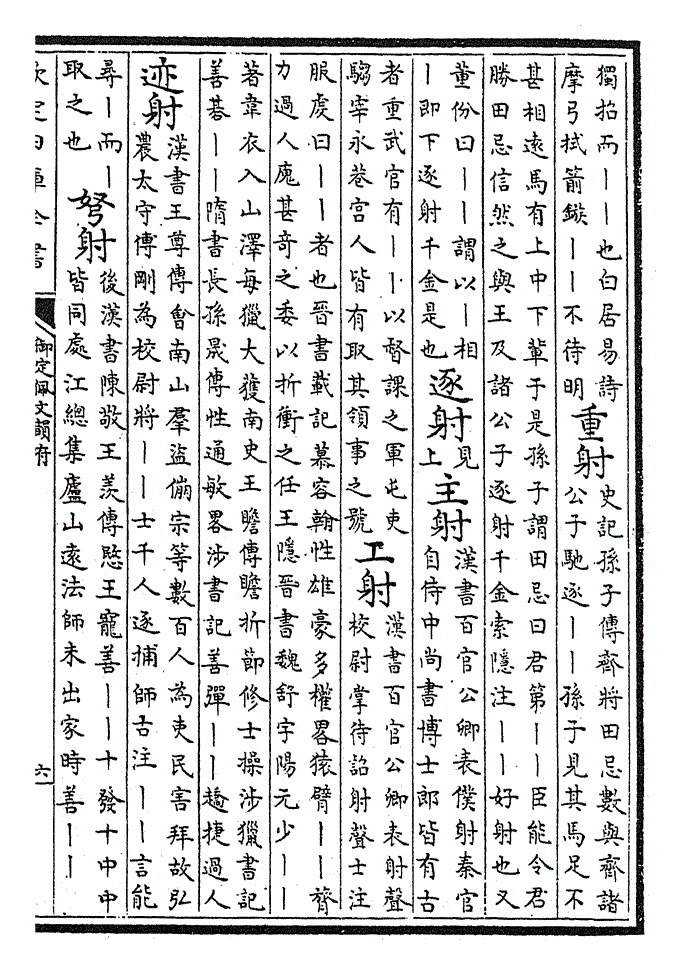 獨招而丨丨也白居易詩
摩弓拭箭鏃丨丨不待明
重射
史記孫子傳齊將田忌數與齊諸
公子馳逐丨丨孫子見其馬足不
甚相逺馬有上中下輩于是孫子謂田忌曰君第丨丨臣能令君
勝田忌信然之與王及諸公子逐射千金索隱注丨丨好射也又
董份曰丨丨謂以丨相
丨即下逐射千金是也
逐射
見
上
主射
漢書百官公卿表僕射秦官
自侍中尚書博士郎皆有古
者重武官有丨丨以督課之軍屯吏
騶宰永巷宫人皆有取其領事之號
工射
漢書百官公卿表射聲
校尉掌待詔射聲士注
服虔曰丨丨者也晉書載記慕容翰性雄豪多權畧猿臂丨丨膂
力過人廆甚奇之委以折衝之任王隱晉書魏舒字陽元少丨丨
著韋衣入山澤每獵大獲南史王瞻傳瞻折節修士操涉獵書記
善碁丨丨隋書長孫晟傳性通敏畧涉書記善彈丨丨趫捷過人
迹射
漢書王尊傳會南山羣盜傰宗等數百人為吏民害拜故弘
農太守傅剛為校尉將丨丨士千人逐捕師古注丨丨言能
尋丨而丨
取之也
弩射
後漢書陳敬王羨傳愍王寵善丨丨十發十中中
皆同處江總集廬山逺法師未出家時善丨丨
欽定四庫全書
御定佩文韻府
六